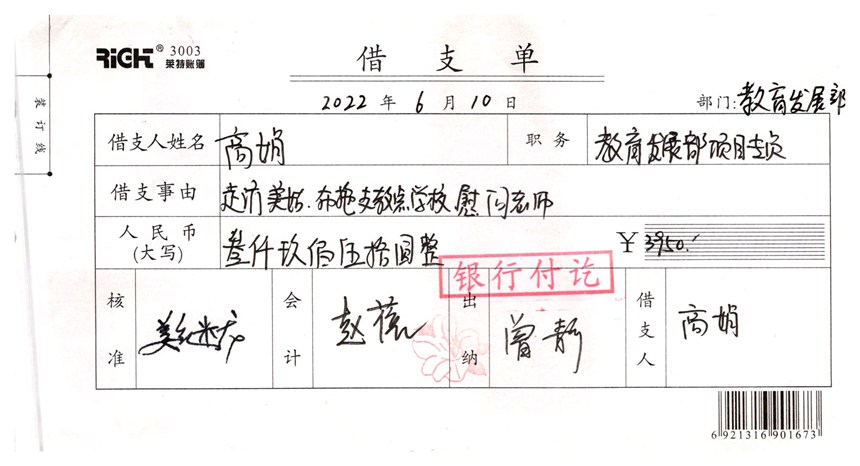 RiGHT® 3003
莱特账簿
借支单
装订线
2022年6月10日 部门:教育发展部
借支人姓名 高娟 职务 教育发展部项目专员
借支事由 走访美姑、布拖支教点学校慰问老师
人民币(大写) 叁仟玖佰伍拾圆整 ¥3950.-
银行付讫
核准 会计 赵蓓 出纳 曾静 借支人 高娟
6 921316 901673